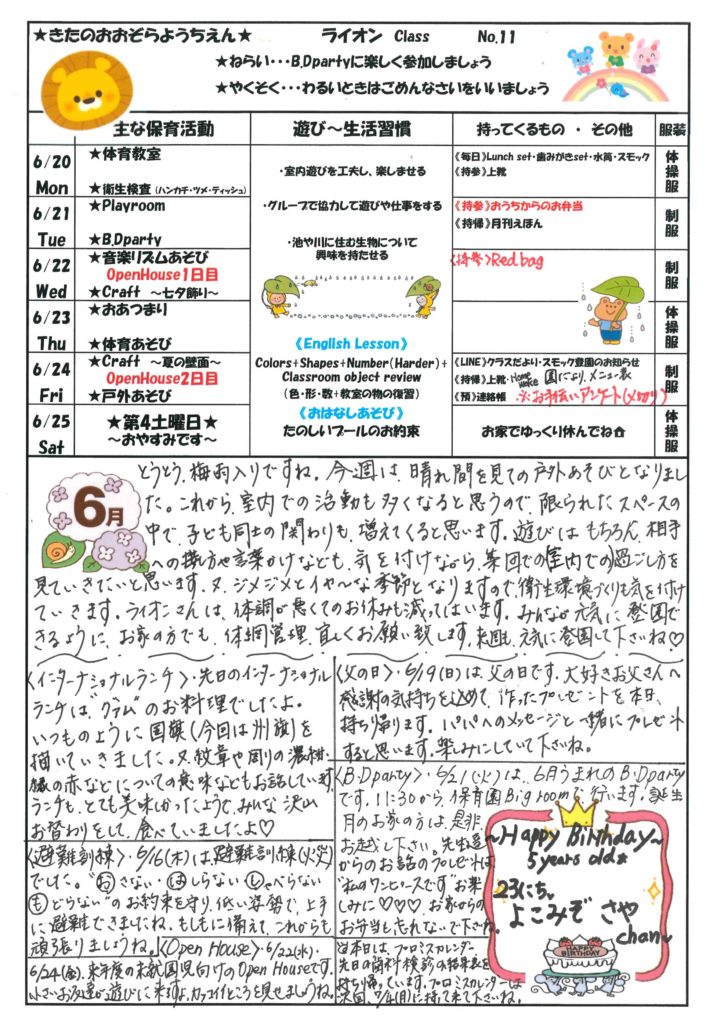 ★きたのおおぞらようちえん★ ライオン Class No.11
★ねらい・・・B.Dpartyに楽しく参加しましょう
★やくそく・・・わるいときはごめんなさいをいいましょう
主な保育活動 遊び～生活習慣 持ってくるもの ・ その他 服装
6/20 Mon
★体育教室
★衛生検査 (ハンカチ・ツメ・ティッシュ)
・室内遊びを工夫し、楽しませる
《毎日》Lunch set・歯みがきset・水筒・スモック
《持参》上靴
体操服
6/21 Tue
★Playroom
★B.Dparty
・グループで協力して遊びや仕事をする
《持参》おうちからのお弁当
《持帰》月刊えほん
制服
6/22 Wed
★音楽リズムあそび
OpenHouse1日目
★Craft ～七夕飾り～
・池や川に住む生物について
興味を持たせる
《持参》Red bag
制服
6/23 Thu
★おあつまり
★体育あそび
《English Lesson》
体操服
6/24 Fri
★Craft ～夏の壁面～
OpenHouse2日目
★戸外あそび
Colors+Shapes+Number(Harder)+
Classroom object review
(色・形・数+教室の物の復習)
《LINE》クラスだより・スモック登園のお知らせ
《持帰》上靴・Home wake 園だより、メニュー表
《預》連絡帳 ※お手伝いアンケート(〆切り)
制服
6/25 Sat
★第4土曜日★
～おやすみです～
《おはなしあそび》
たのしいプールのお約束
お家でゆっくり休んでね
体操服
6月
とうとう、梅雨入りですね。今週は、晴れ間を見ての戸外あそびとなりまし
た。これから、室内での活動も多くなると思うので、限られたスペースの
中で、子ども同士の関わりも、増えてくると思います。遊びは もちろん、相手
への接し方や言葉かけなども、気を付けながら、集団での室内での過ごし方を
見ていきたいと思います。又、ジメジメとイヤ～な季節となりますので、衛生環境づくりも気を付け
ていきます。ライオンさんは、体調が悪くてのお休みも減ってはいます。みんなが元気に登園で
きるように、お家の方でも、体調管理、宜しくお願い致します。来週も、元気に登園して下さいね♡
〈インターナショナルランチ〉・先日のインターナショナル
ランチは、"グアム"のお料理でしたよ。
いつものように国旗(今回は州旗)を
描いていきました。又、紋章や周りの濃紺・
縁の赤などについての意味などもお話しています。
ランチも、とても美味しかったようで、みんな沢山
お替わりをして、食べていましたよ♡
〈避難訓練〉・6/16(木)は、避難訓練(火災)
でした。"おさない・はしらない・しゃべらない
もどらない"のお約束を守り、低い姿勢で、上手
に避難できましたね。もしもに備えて、これからも
頑張りましょうね。
〈Open House〉・6/22(水)・
6/24(金)、来年度の未就園児向けのOpen Houseです。
小さいお友達が遊びに来ますよ、カッコイイところを見せましょうね。
〈父の日〉・6/19(日)は、父の日です。大好きお父さんへ
感謝の気持ちを込めて、作ったプレゼントを本日、
持ち帰ります。パパへのメッセージと一緒にプレゼント
すると思います。楽しみにしていて下さいね。
〈B.Dparty〉・6/21(火)は、6月うまれのB.Dparty
です。11:30から、保育園Big roomで行います。誕生
月のお家の方は、是非
お越し下さい。先生達
からのお話のプレゼントは
"私のワンピース"です"お楽
しみに♡♡♡ お家からの
お弁当も忘れないで下さいね。
☆本日は、プロミスカレンダー
先日の歯科検診の結果表を
持ち帰っています。プロミスカレンダーは
次回、7/4(月)に持って来て下さいね。
～Happy Birthday～
5 years old☆
23にち、
よこみぞ さや
chan～
HAPPY BIRTHDAY